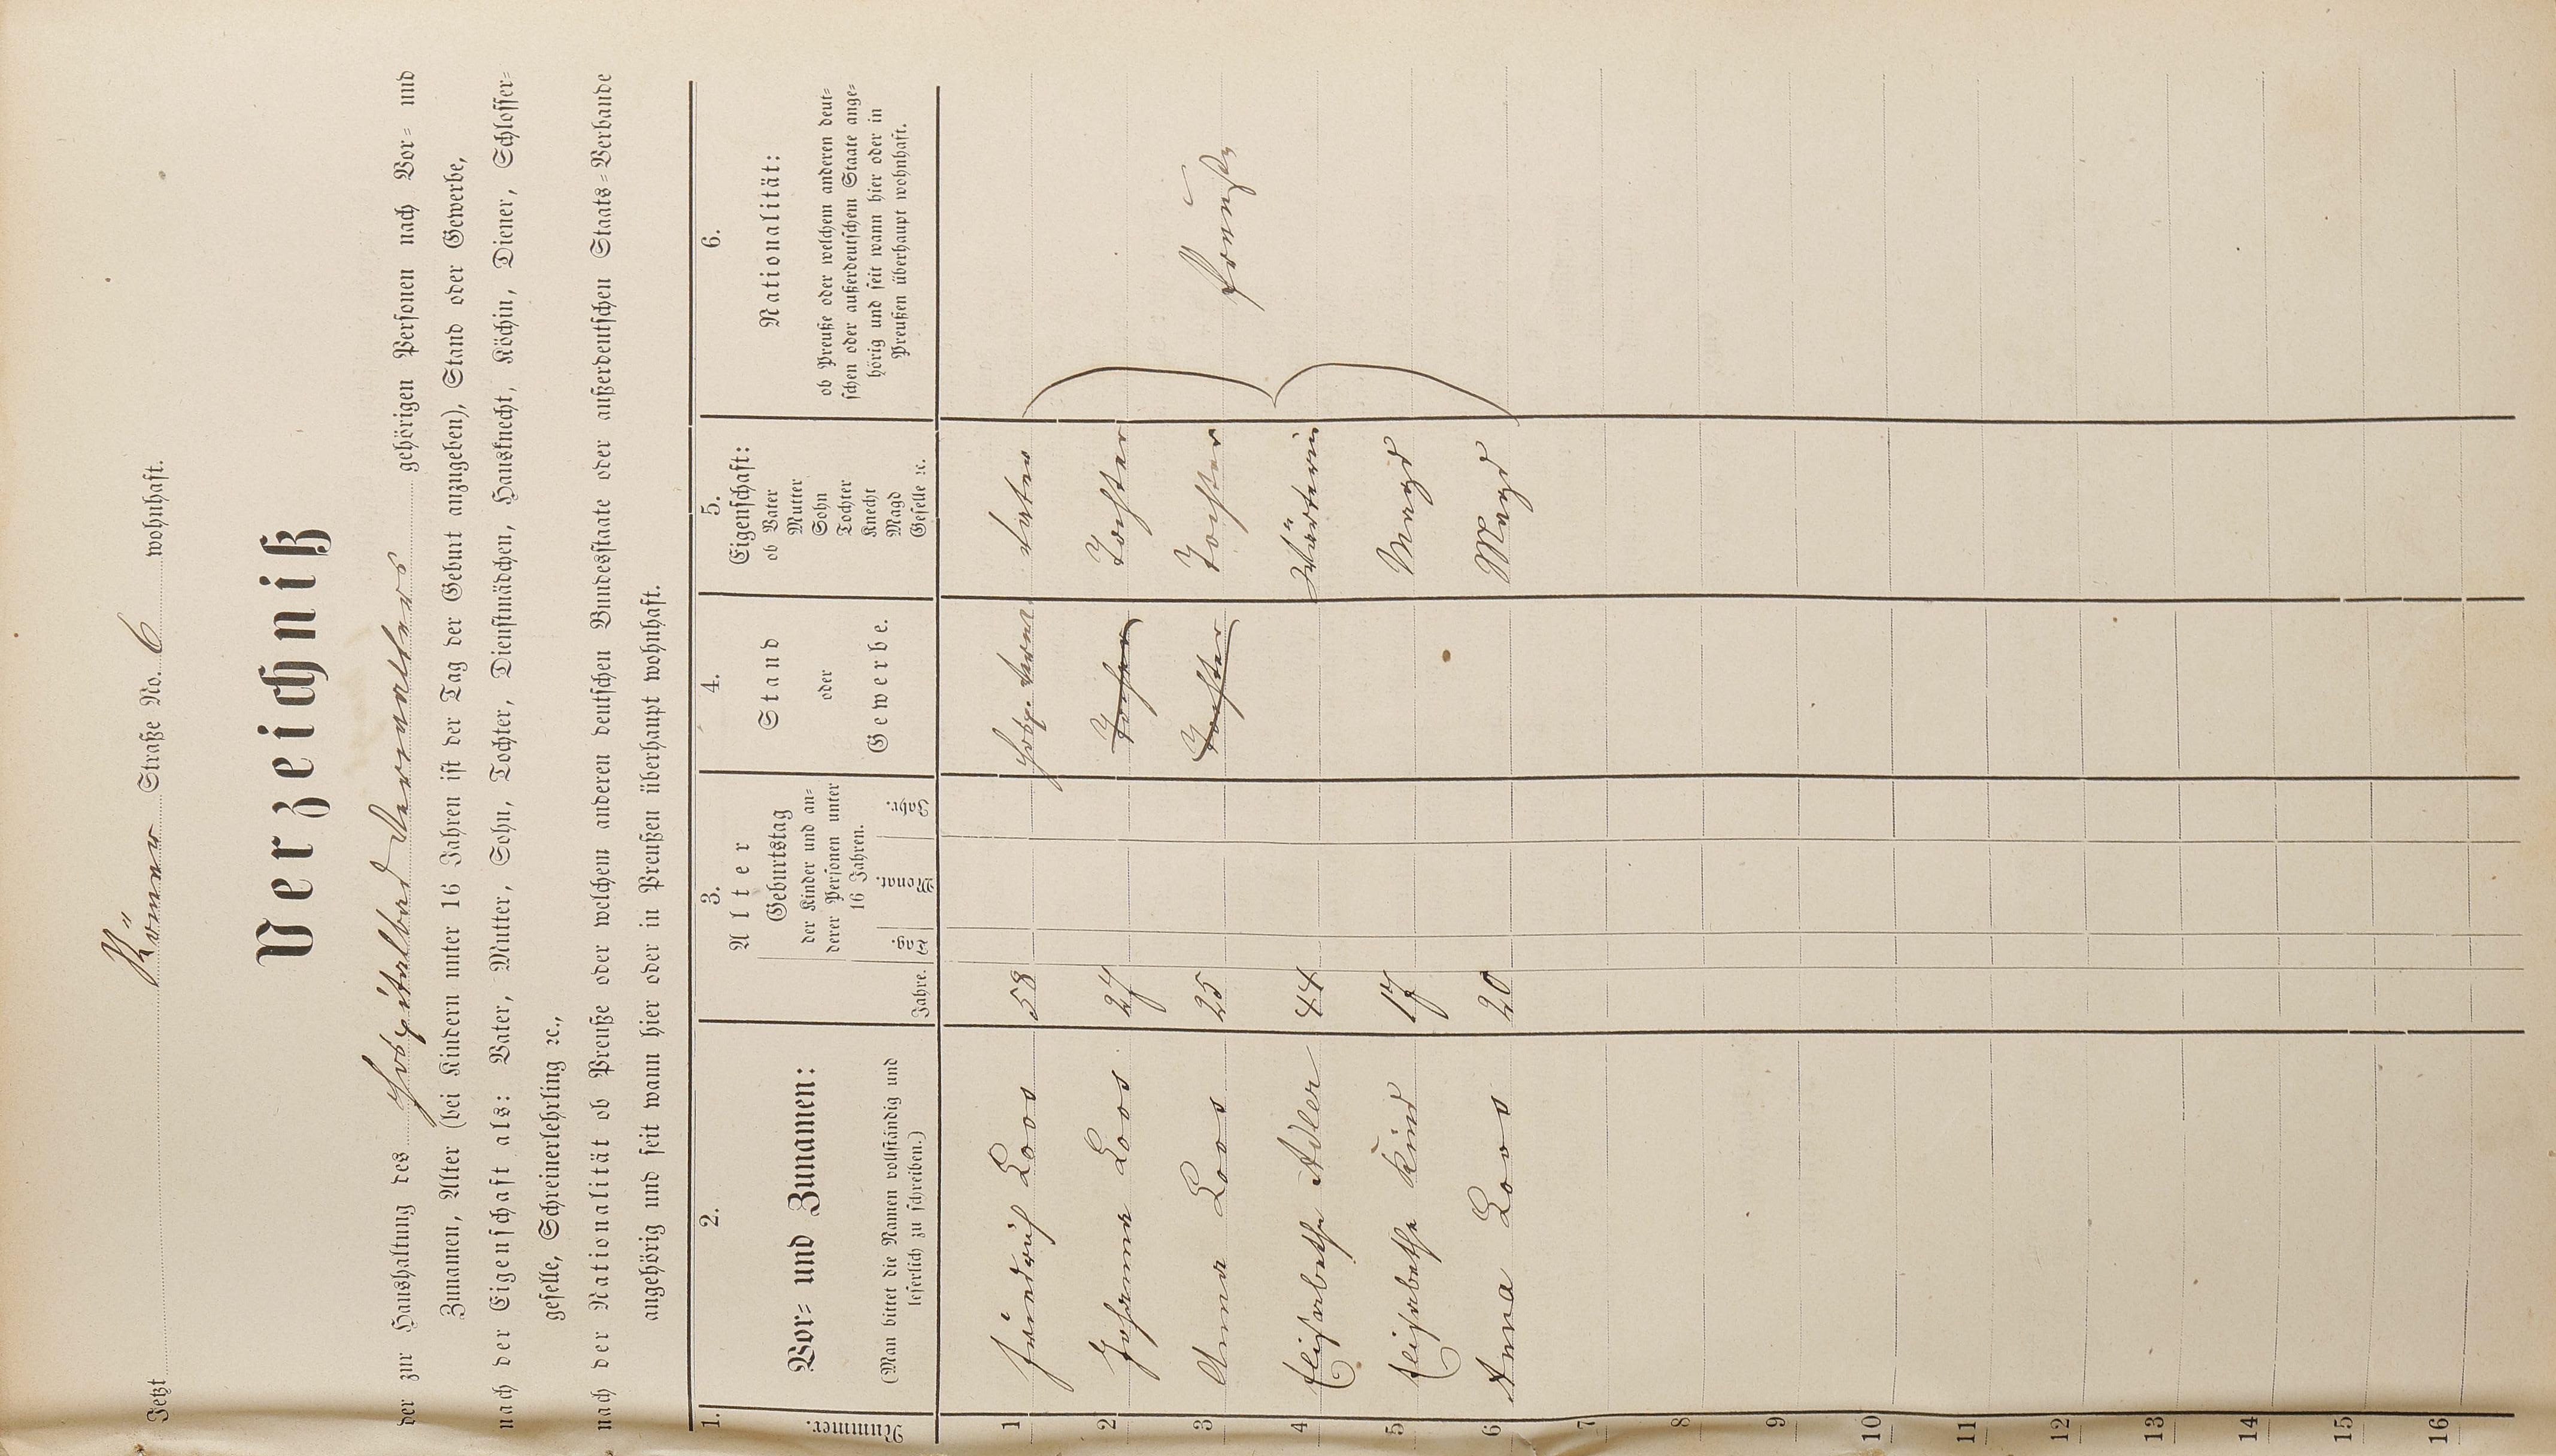 Jetzt Römer Straße No. 6 wohnhaft.
Verzeichniß
der zur Haushaltung des Hospitalbad Verwalters gehörigen Personen nach Vor= und
Zunamen, Alter (bei Kindern unter 16 Jahren ist der Tag der Geburt anzugeben), Stand oder Gewerbe,
nach der Eigenschaft als: Vater, Mutter, Sohn, Tochter, Dienstmädchen, Hausknecht, Köchin, Diener, Schlosser=
geselle, Schreinerlehrling ꝛc.,
nach der Nationalität ob Preuße oder welchem anderen deutschen Bundesstaate oder außerdeutschen Staats=Verbande
angehörig und seit wann hier oder in Preußen überhaupt wohnhaft.
1. 2. 3. 4. 5. 6.
Nummer.
Vor= und Zunamen:
(Man bittet die Namen vollständig und
leserlich zu schreiben.)
Alter
Jahre.
Geburtstag
der Kinder und an=
derer Personen unter
16 Jahren.
Tag. Monat. Jahr.
Stand
oder
Gewerbe.
Eigenschaft:
ob Vater
Mutter
Sohn
Tochter
Knecht
Magd
Geselle ꝛc.
Nationalität:
ob Preuße oder welchem anderen deut=
schen oder außerdeutschem Staate ange=
hörig und seit wann hier oder in
Preußen überhaupt wohnhaft.
1 Friedrich Loos 58 Hosp. Verw. Vater
2 Johanna Loos 27 Tochter Tochter
3 Anna Loos 25 Tochter Tochter
Preuße
4 Elisabethe Adler 44 Wärterin
5 Elisabethe Kind 17 Magd
6 Anna Loos 20 Magd
7
8
9
10
11
12
13
14
15
16